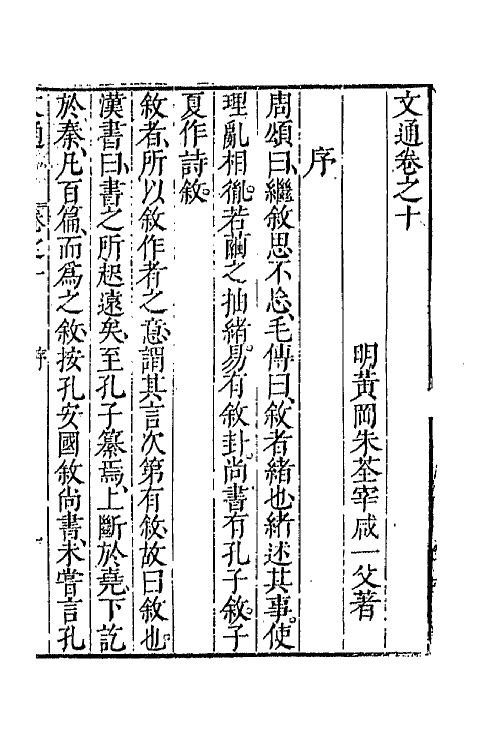 文通卷之十
明黃岡朱荃宰咸一父著
序
周頌曰、繼敘思不忘、毛傳曰、敘者緒也、緒述其事、使
理亂相胤、若繭之抽緒、易有敘卦、尚書有孔子敘、子
夏作詩敘。
敘者、所以敘作者之意、謂其言次第有敘、故曰敘也。
漢書曰、書之所起遠矣、至孔子纂焉、上斷於堯、下訖
於秦、凡百篇、而爲之敘、按孔安國敘尚書、未嘗言孔
文通 卷之十 序